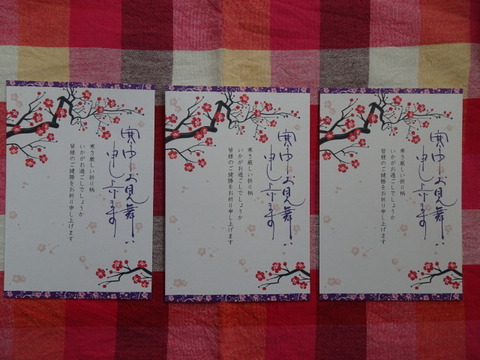 寒中お見舞い
申し上げます
寒さ厳しい折り柄
いかがお過ごしでしょうか
皆様のご健勝をお祈り申し上げます
寒中お見舞い
申し上げます
寒さ厳しい折り柄
いかがお過ごしでしょうか
皆様のご健勝をお祈り申し上げます
寒中お見舞い
申し上げます
寒さ厳しい折り柄
いかがお過ごしでしょうか
皆様のご健勝をお祈り申し上げます